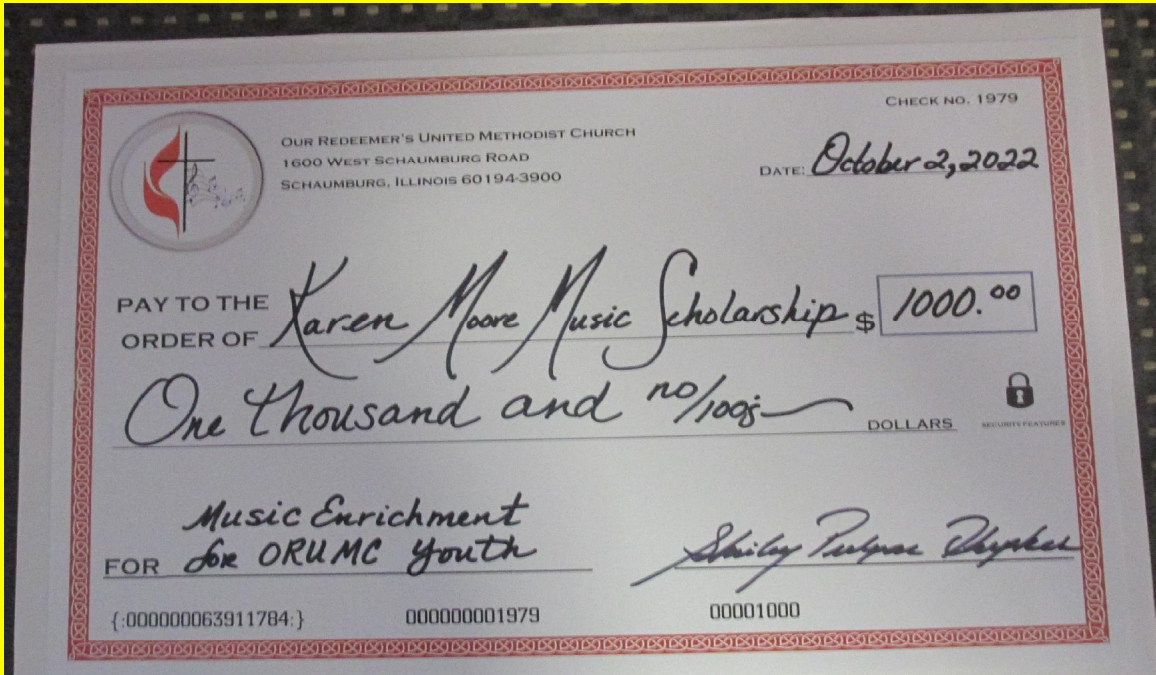 CHECK NO. 1979
OUR REDEEMER'S UNITED METHODIST CHURCH
1600 WEST SCHAUMBURG ROAD
SCHAUMBURG, ILLINOIS 60194-3900
DATE: October 2, 2022
PAY TO THE
ORDER OF Karen Moore Music Scholarship $ 1000.00
One thousand and no/100s
DOLLARS
SECURITY FEATURES
Music Enrichment
FOR for ORUMC Youth
Shirley
{:000000063911784:} 000000001979 00001000